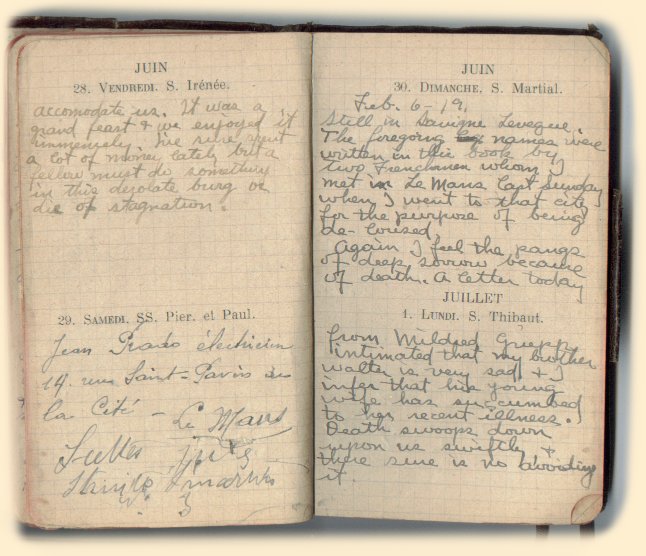 JUIN
28. VENDREDI. S. Irénée.
accomodate us. It was a
grand feast & we enjoyed it
immensely. I've sure spent
a lot of money lately but a
fellow must do something
in this desolate burg or
die of stagnation.
29. SAMEDI. SS. Pier. et Paul.
Jean Prado électricien
14. rue Saint-Pavin de
la Cité - Le Mans
JUIN
30. DIMANCHE. S. Martial.
Feb. 6-19,
Still in Savigne Leveque.
The foregoing names were
written in this book by
two Frenchmen whom I
met in Le Mans last Sunday
when I went to that city
for the purpose of being
de-loused.
Again I feel the pangs
of deep sorrow because
of death. A letter today
JUILLET
1. LUNDI. S. Thibaut.
from Mildred
intimated that my brother
Walter is very sad & I
infer that his young
wife has succumbed
to her recent illness.
Death swoops down
upon us swiftly &
there sure is no avoiding
it.